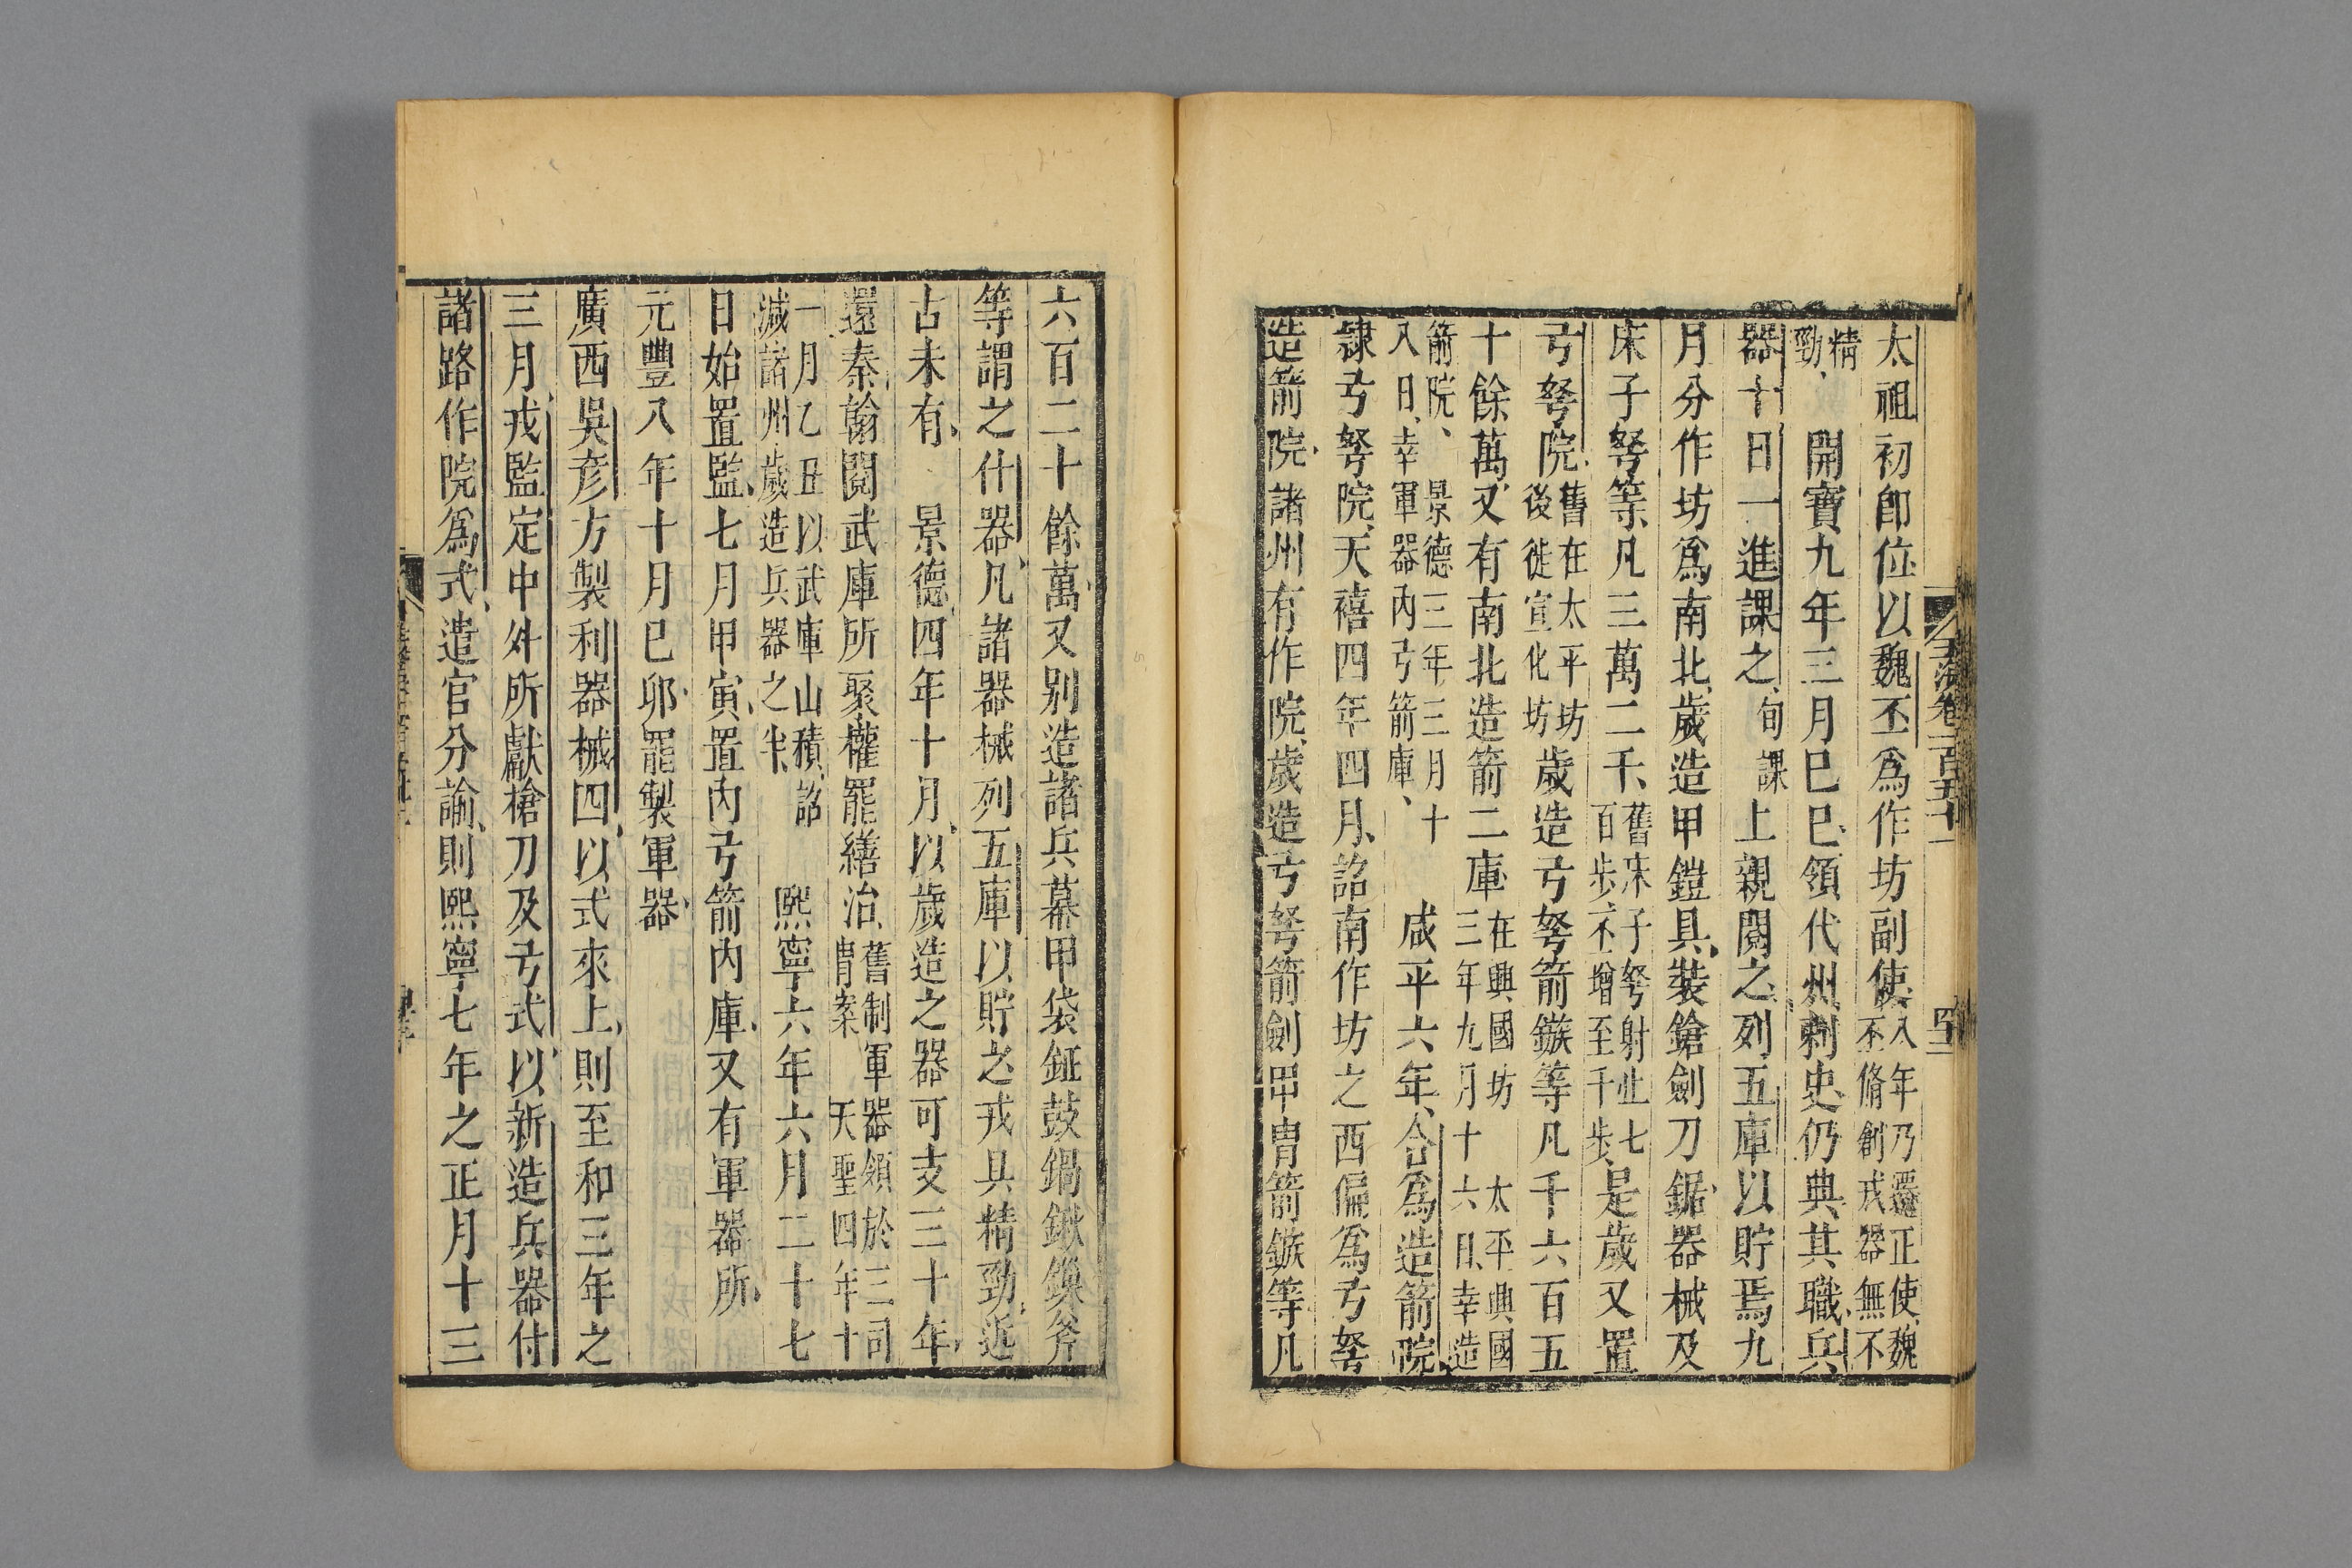 玉海卷一百五十一
太祖初卽位以魏丕爲作坊副使八年乃遷正使魏丕脩創戎器無不
精勁開寶九年三月巳巳領代州刺史仍典其職兵
器十日一進課之旬課上親閱之列五庫以貯焉九
月分作坊爲南北歲造甲鎧具裝鎗劍刀鋸器械及
床子弩等凡三萬二千舊床子弩射止七百步丕增至千步是歲又置
弓弩院舊在太平坊後徙宣化坊歲造弓弩箭鏃等凡千六百五
十餘萬又有南北造箭二庫在興國坊三年九月十六日幸造太平興國
箭院景德三年三月十八日幸軍器內弓箭庫咸平六年合爲造箭院
隷弓弩院天禧四年四月詔南作坊之西偏爲弓弩
造箭院諸州有作院歲造弓弩箭劍甲冑箭鏃等凡
六百二十餘萬又别造諸兵幕甲袋鉦鼓鍋鍬钁斧
等謂之什器凡諸器械列五庫以貯之戎具精勁近
古未有景德四年十月以歲造之器可支三十年
還秦翰閱武庫所聚權罷繕治舊制軍器領於三司冑案天聖四年十
一月乙丑以武庫山積詔減諸州歲造兵器之半熙寧六年六月二十七
日始置監七月甲寅置內弓箭內庫又有軍器所
元豐八年十月巳卯罷製軍器
廣西吳彥方製利器械四以式來上則至和三年之
三月戎監定中外所獻槍刀及弓式以新造兵器付
諸路作院爲式遣官分諭則熙寧七年之正月十三